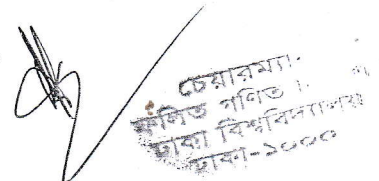 চেয়ারম্যা
ফলিত গণিত
ঢাকা বিশ্ববিদ্যালয়
ঢাকা-১০০০